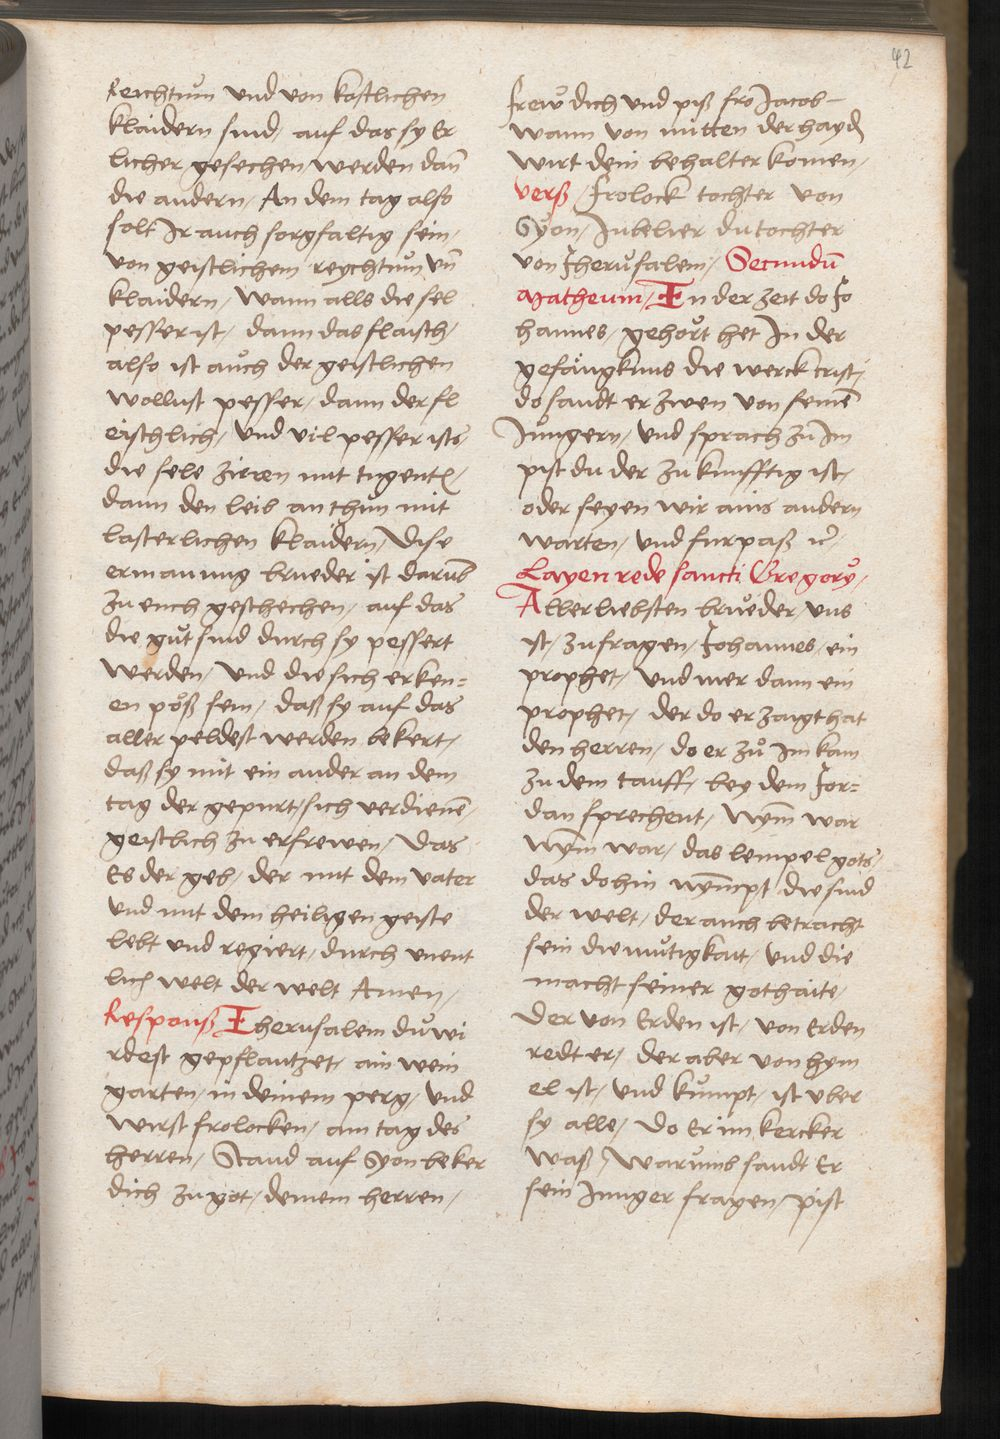 42
Reichtum vnd von kostlichen
klaidern sind / auf das sy Er
licher gesechen werden dan̄
die andern / An dem tag also
solt Ir auch sorgfaltig sein /
von geistlichem reychtum vn̄
klaidern / Wann alls die sel
pesser ist / dann das flaisch /
also ist aůch der geistlichen
wollust pesser / dann der fl
eischlich / vnd vil pesser ists
die sele ziren mit tugentē /
dann den leib an thun mit
lasterlichen klaidern / Dise
ermanung brueder ist darūb
zu euch geschechen / auf das
die gůt sind durch sy pessert
werden / vnd die sich erken=
en pöß sein / daß sy auf das
aller peldest werden bekert /
daß sy mit ein ander an dem
tag der gepurt / sich verdienē /
geistlich zu erfrewen / Das
Es der geb / der mit dem vater
vnd mit dem heiligen geiste
lebt vnd regiert / durch vnent
lich welt der welt Amen /
Respons Iherusalem du wi
rdest gepflantzet / ain wein
garten / in deinem perg / vnd
wirst frolocken / am tag des
herren / Stand auf Syon beker
dich zu got / deinem herren /
frew dich vnd piß fro Jacob –
wann von mitten der hayd̄
wirt dein behalter komen /
verß / frolock tochter von
Syon / Jubelier du tochter
von Jherusalem / Secundū
Matheum / In der zeit do Jo
hannes / gehört het In der
gefängknus die werck crist /
do sandt er zwen von seinē
Jungern / vnd sprach zů Im
pist du der zukunfftig ist /
oder seyen wir ains andern
warten / vnd furpaß ꝛc̄ /
Layen rede sancti Gregory /
Allerliebsten brůeder / vns
ist / zufragen / Johannes / ein
prophet / vnd mer dann ein
prophet / der do erzaigt hat
den herren / do er zů Im kam
zu dem tauff / bey dem Jor=
dan sprechent / Nym̄ war
Nym̄ war / das lempel gots /
das do hin nym̄pt die sind
der welt / der auch betracht
sein diemůtigkait / vnd die
macht seiner gothaite /
Der von Erden ist / von Erden
redt er / der aber von hym
el ist / vnd kůmpt / ist vber
sy alle / Do Er im kercker
waß / Warumb sandt Er
sein Junger fragen / pist